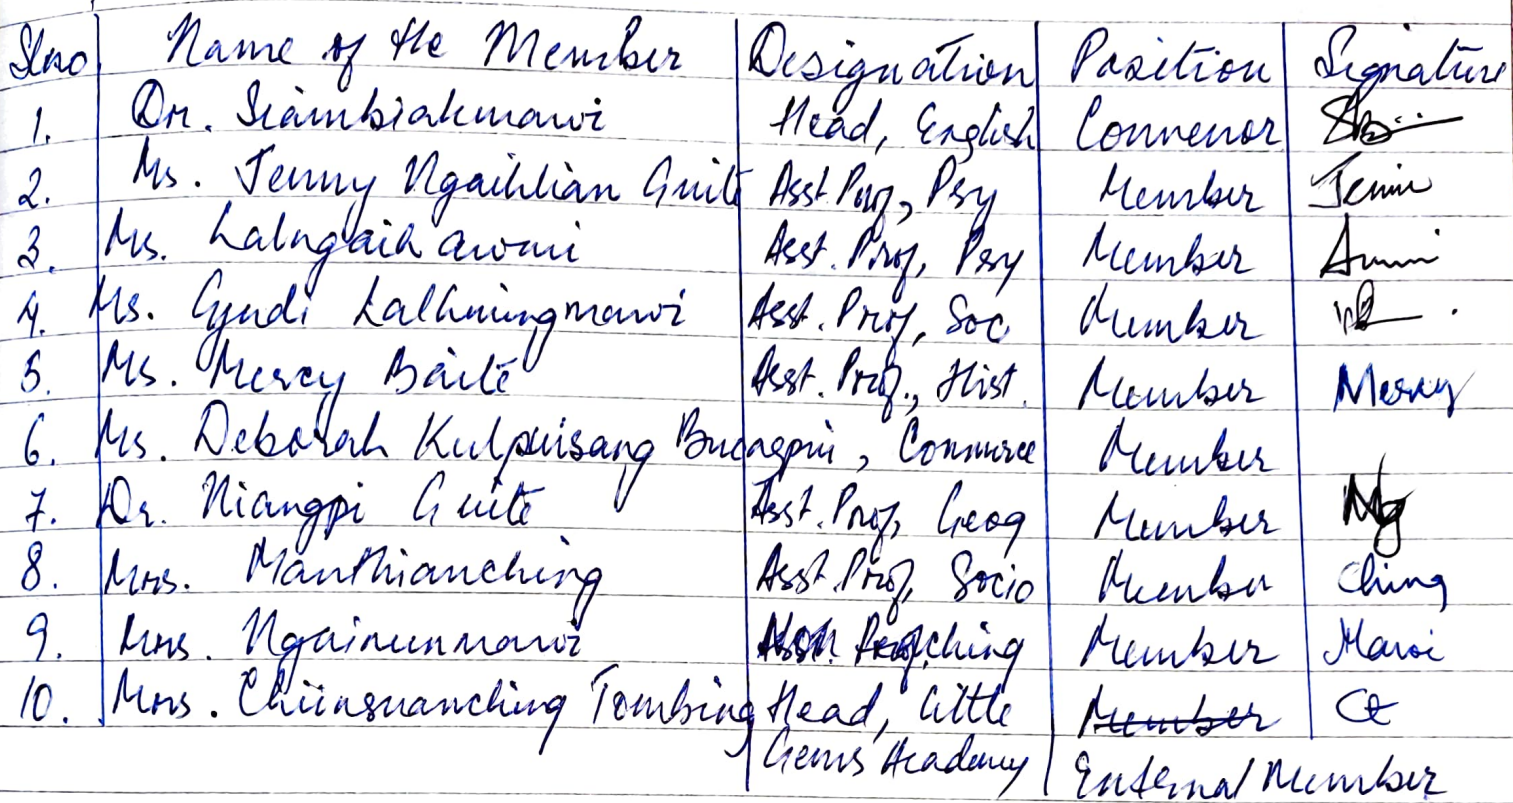 Slno Name of the Member Designation Position Signature
1. Dr. Siambiakmawi Head, English Convenor
2. Ms. Jenny Ngaihlian Guite Asst. Prof, Psy Member Jenni
3. Ms. Lalngaihawmi Asst. Prof, Psy Member Ammi
4. Ms. Cyndi Lalhmingmawi Asst. Prof, Soc Member
5. Ms. Mercy Baite Asst. Prof., Hist. Member Mercy
6. Ms. Deborah Kulpuisang Buongpui, Commerce Member
7. Dr. Niangpi Guite Asst. Prof, Geog Member Ng
8. Mrs. Manthianching Asst. Prof, Socio Member Ching
9. Mrs. Ngainunmawi Member Mawi
10. Mrs. Chiinsuanching Tombing Head, Little Member Ct
Gems Academy External Member